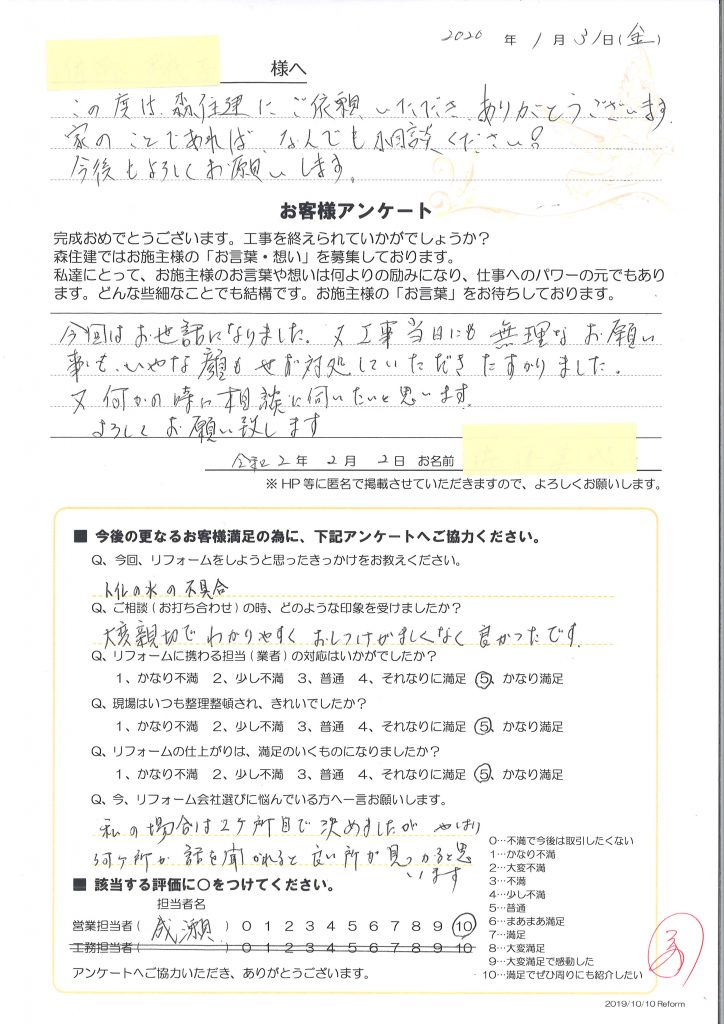 2020 年 1 月 31 日 (金)
様へ
この度は、森住建に ご依頼 いただき ありがとうございます。
家の ことであれば、なんでも 相談ください!
今後も よろしく お願い します。
お客様アンケート
完成おめでとうございます。工事を終えられていかがでしょうか?
森住建ではお施主様の「お言葉・想い」を募集しております。
私達にとって、お施主様のお言葉や想いは何よりの励みになり、仕事へのパワーの元でもあり
ます。どんな些細なことでも結構です。お施主様の「お言葉」をお待ちしております。
今回は お世話になりました。又 工事 当日にも 無理な お願い
事も、いやな 顔も せず対処していただき たすかりました。
又 何かの時に 相談に伺いたいと思います。
よろしく お願い致します
令和2年 2月 2日 お名前
※HP等に匿名で掲載させていただきますので、よろしくお願いします。
■ 今後の更なるお客様満足の為に、下記アンケートへご協力ください。
Q、今回、リフォームをしようと思ったきっかけをお教えください。
トイレの水の不具合
Q、ご相談(お打ち合わせ)の時、どのような印象を受けましたか?
大変親切で わかりやすく おしつけがましくなく 良かったです。
Q、リフォームに携わる担当(業者)の対応はいかがでしたか?
1、かなり不満 2、少し不満 3、普通 4、それなりに満足 5、かなり満足
Q、現場はいつも整理整頓され、きれいでしたか?
1、かなり不満 2、少し不満 3、普通 4、それなりに満足 5、かなり満足
Q、リフォームの仕上がりは、満足のいくものになりましたか?
1、かなり不満 2、少し不満 3、普通 4、それなりに満足 5、かなり満足
Q、今、リフォーム会社選びに悩んでいる方へ一言お願いします。
私の場合は2ケ所目で 決めましたが やはり
何ケ所か 話を聞かれると 良い所が見つかると思
います
■ 該当する評価に○をつけてください。
担当者名
営業担当者( 成瀬 ) 0 1 2 3 4 5 6 7 8 9 10
工務担当者( ) 0 1 2 3 4 5 6 7 8 9 10
アンケートへご協力いただき、ありがとうございます。
0…不満で今後は取引したくない
1…かなり不満
2…大変不満
3…不満
4…少し不満
5…普通
6…まあまあ満足
7…満足
8…大変満足
9…大変満足で感動した
10…満足でぜひ周りにも紹介したい
2019/10/10 Reform